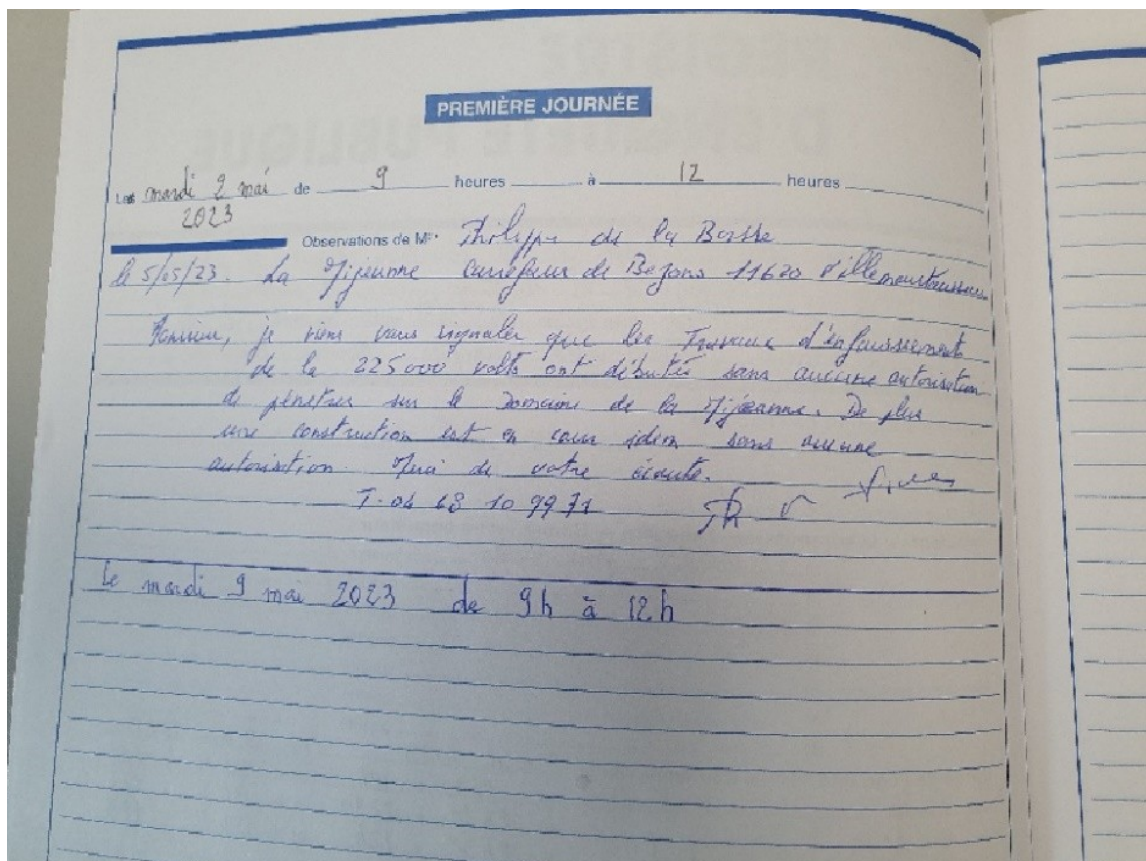 PREMIÈRE JOURNÉE
Les mardi 2 mai de 9 heures à 12 heures
2023
Observations de M Philippe de la
le 5/05/23. La Mijeanne Carrefour de Bezons 11620 Villemoustaussou
Monsieur, je viens vous signaler que les Travaux d'enfouissement
de la 225000 volts ont débutés sans aucune autorisation
de pénétrer sur le Domaine de la Mijeanne. De plus
une construction est en cour idem sans aucune
autorisation. Merci de votre écoute.
T. 04 68 10 99 71
Le mardi 9 mai 2023 de 9h à 12h